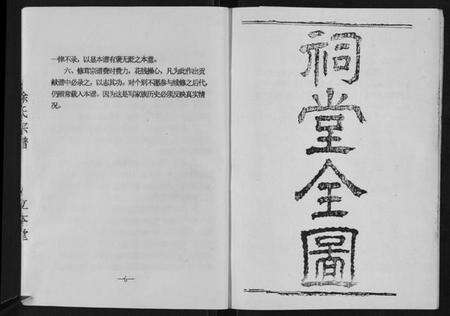 一律不录，以显本谱有褒无贬之本意。
六、修宗谱费时费力，花钱操心，凡为此作出贡
献谱中必录之，以志其功，对个别不愿参与续修之后代，
仍照常载入本谱，因为这是写家族历史必须反映真实情
况。
徐氏宗谱
立本堂
祠堂全圖